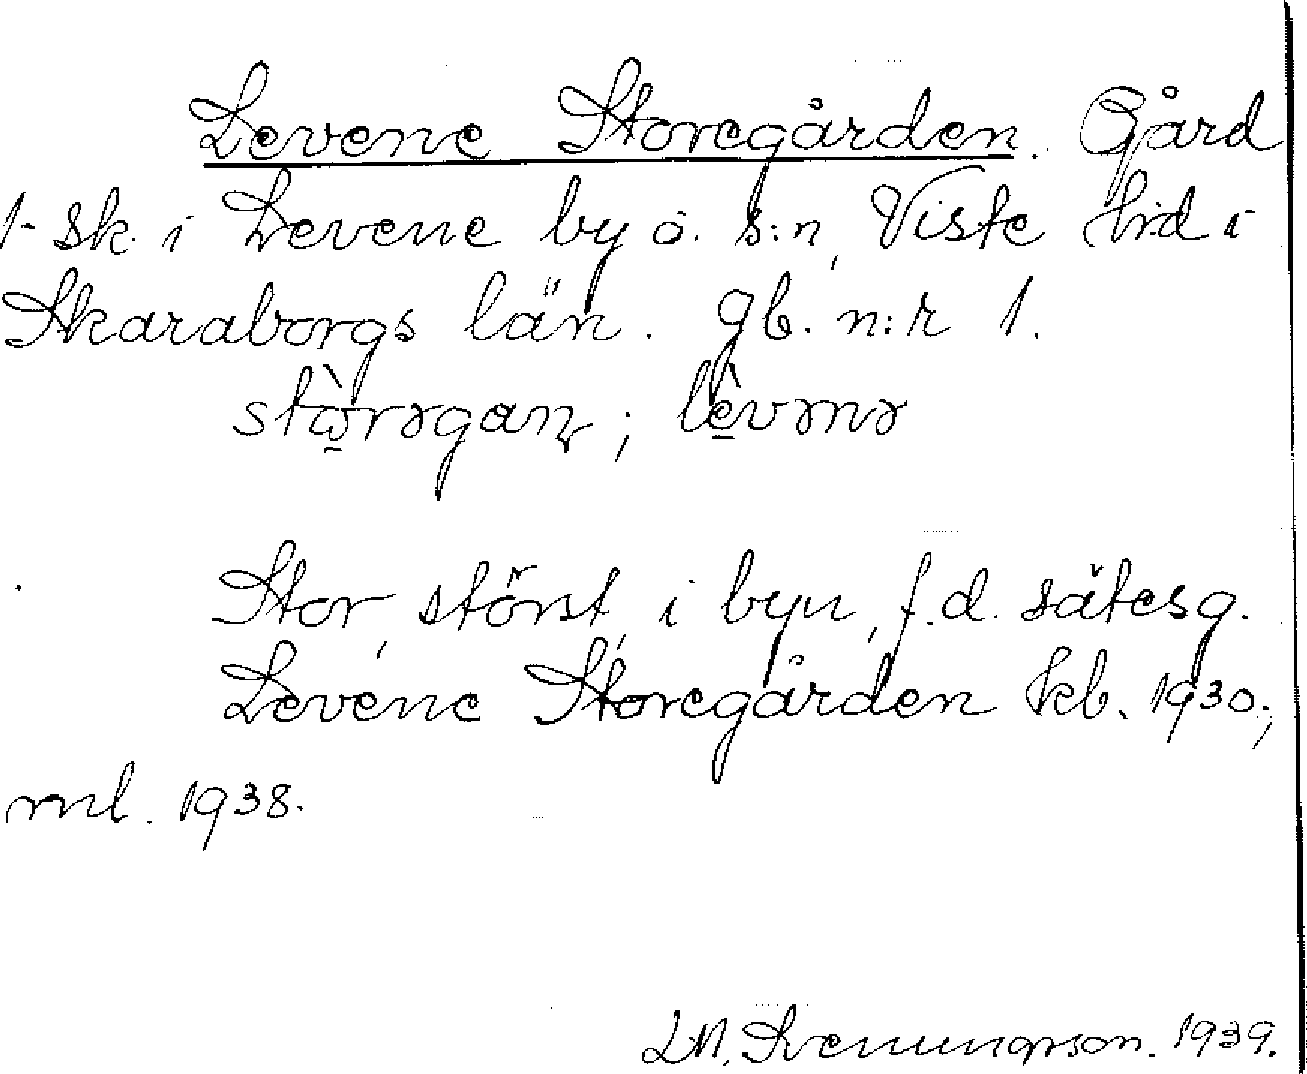 Levene Storegården. Gård
1-sk. i Levene by o. s:n, Viste hd i
Skaraborgs län. gb. n:r 1.
stòrəgan; lèvənə
Stor, störst i byn, f.d. sätesg.
Levene Storegården kb. 1930;
ml. 1938.
LM. Svenungsson. 1939.